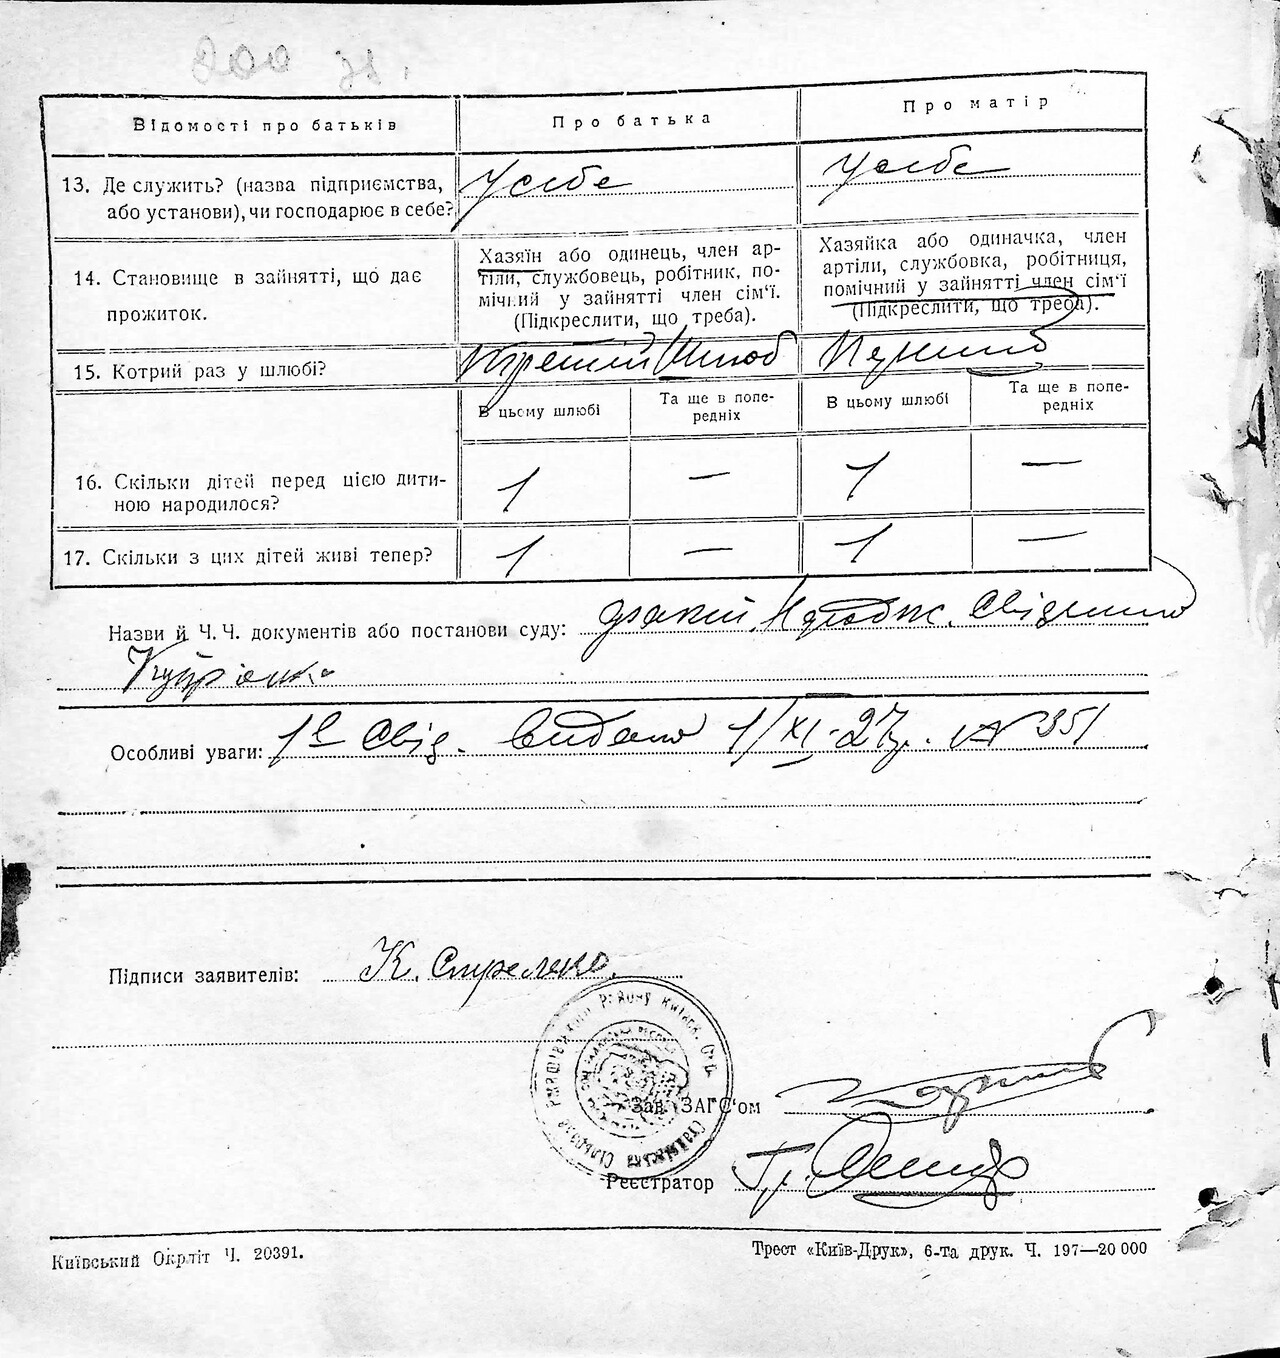 200 зв.
Відомості про батьків
Про батька
Про матір
13. Де служить? (назва підприємства,
або установи), чи господарює в себе?
У себе
У себе
14. Становище в зайнятті, що дає
прожиток.
Хазяїн або одинець, член ар-
тіли, службовець, робітник, по-
мічний у зайнятті член сім'ї.
(Підкреслити, що треба).
Хазяйка або одиначка, член
артіли, службовка, робітниця,
помічний у зайнятті член сім'ї
(Підкреслити, що треба).
15. Котрий раз у шлюбі?
третій шлюб
В цьому шлюбі
Та ще в попе-
редніх
В цьому шлюбі
Та ще в попе-
редніх
16. Скільки дітей перед цією дити-
ною народилося?
1 — 1 —
17. Скільки з цих дітей живі тепер?
1 — 1 —
Назви й Ч. Ч. документів або постанови суду:
Особливі уваги: Свід. видано 1/XI-27р. № 351
Підписи заявителів: К.
Району Київ.
Сільрада
Зав. ЗАГС'ом
Реєстратор Гр.
Київський Окрліт Ч. 20391.
Трест «Київ-Друк», 6-та друк. Ч. 197—20 000